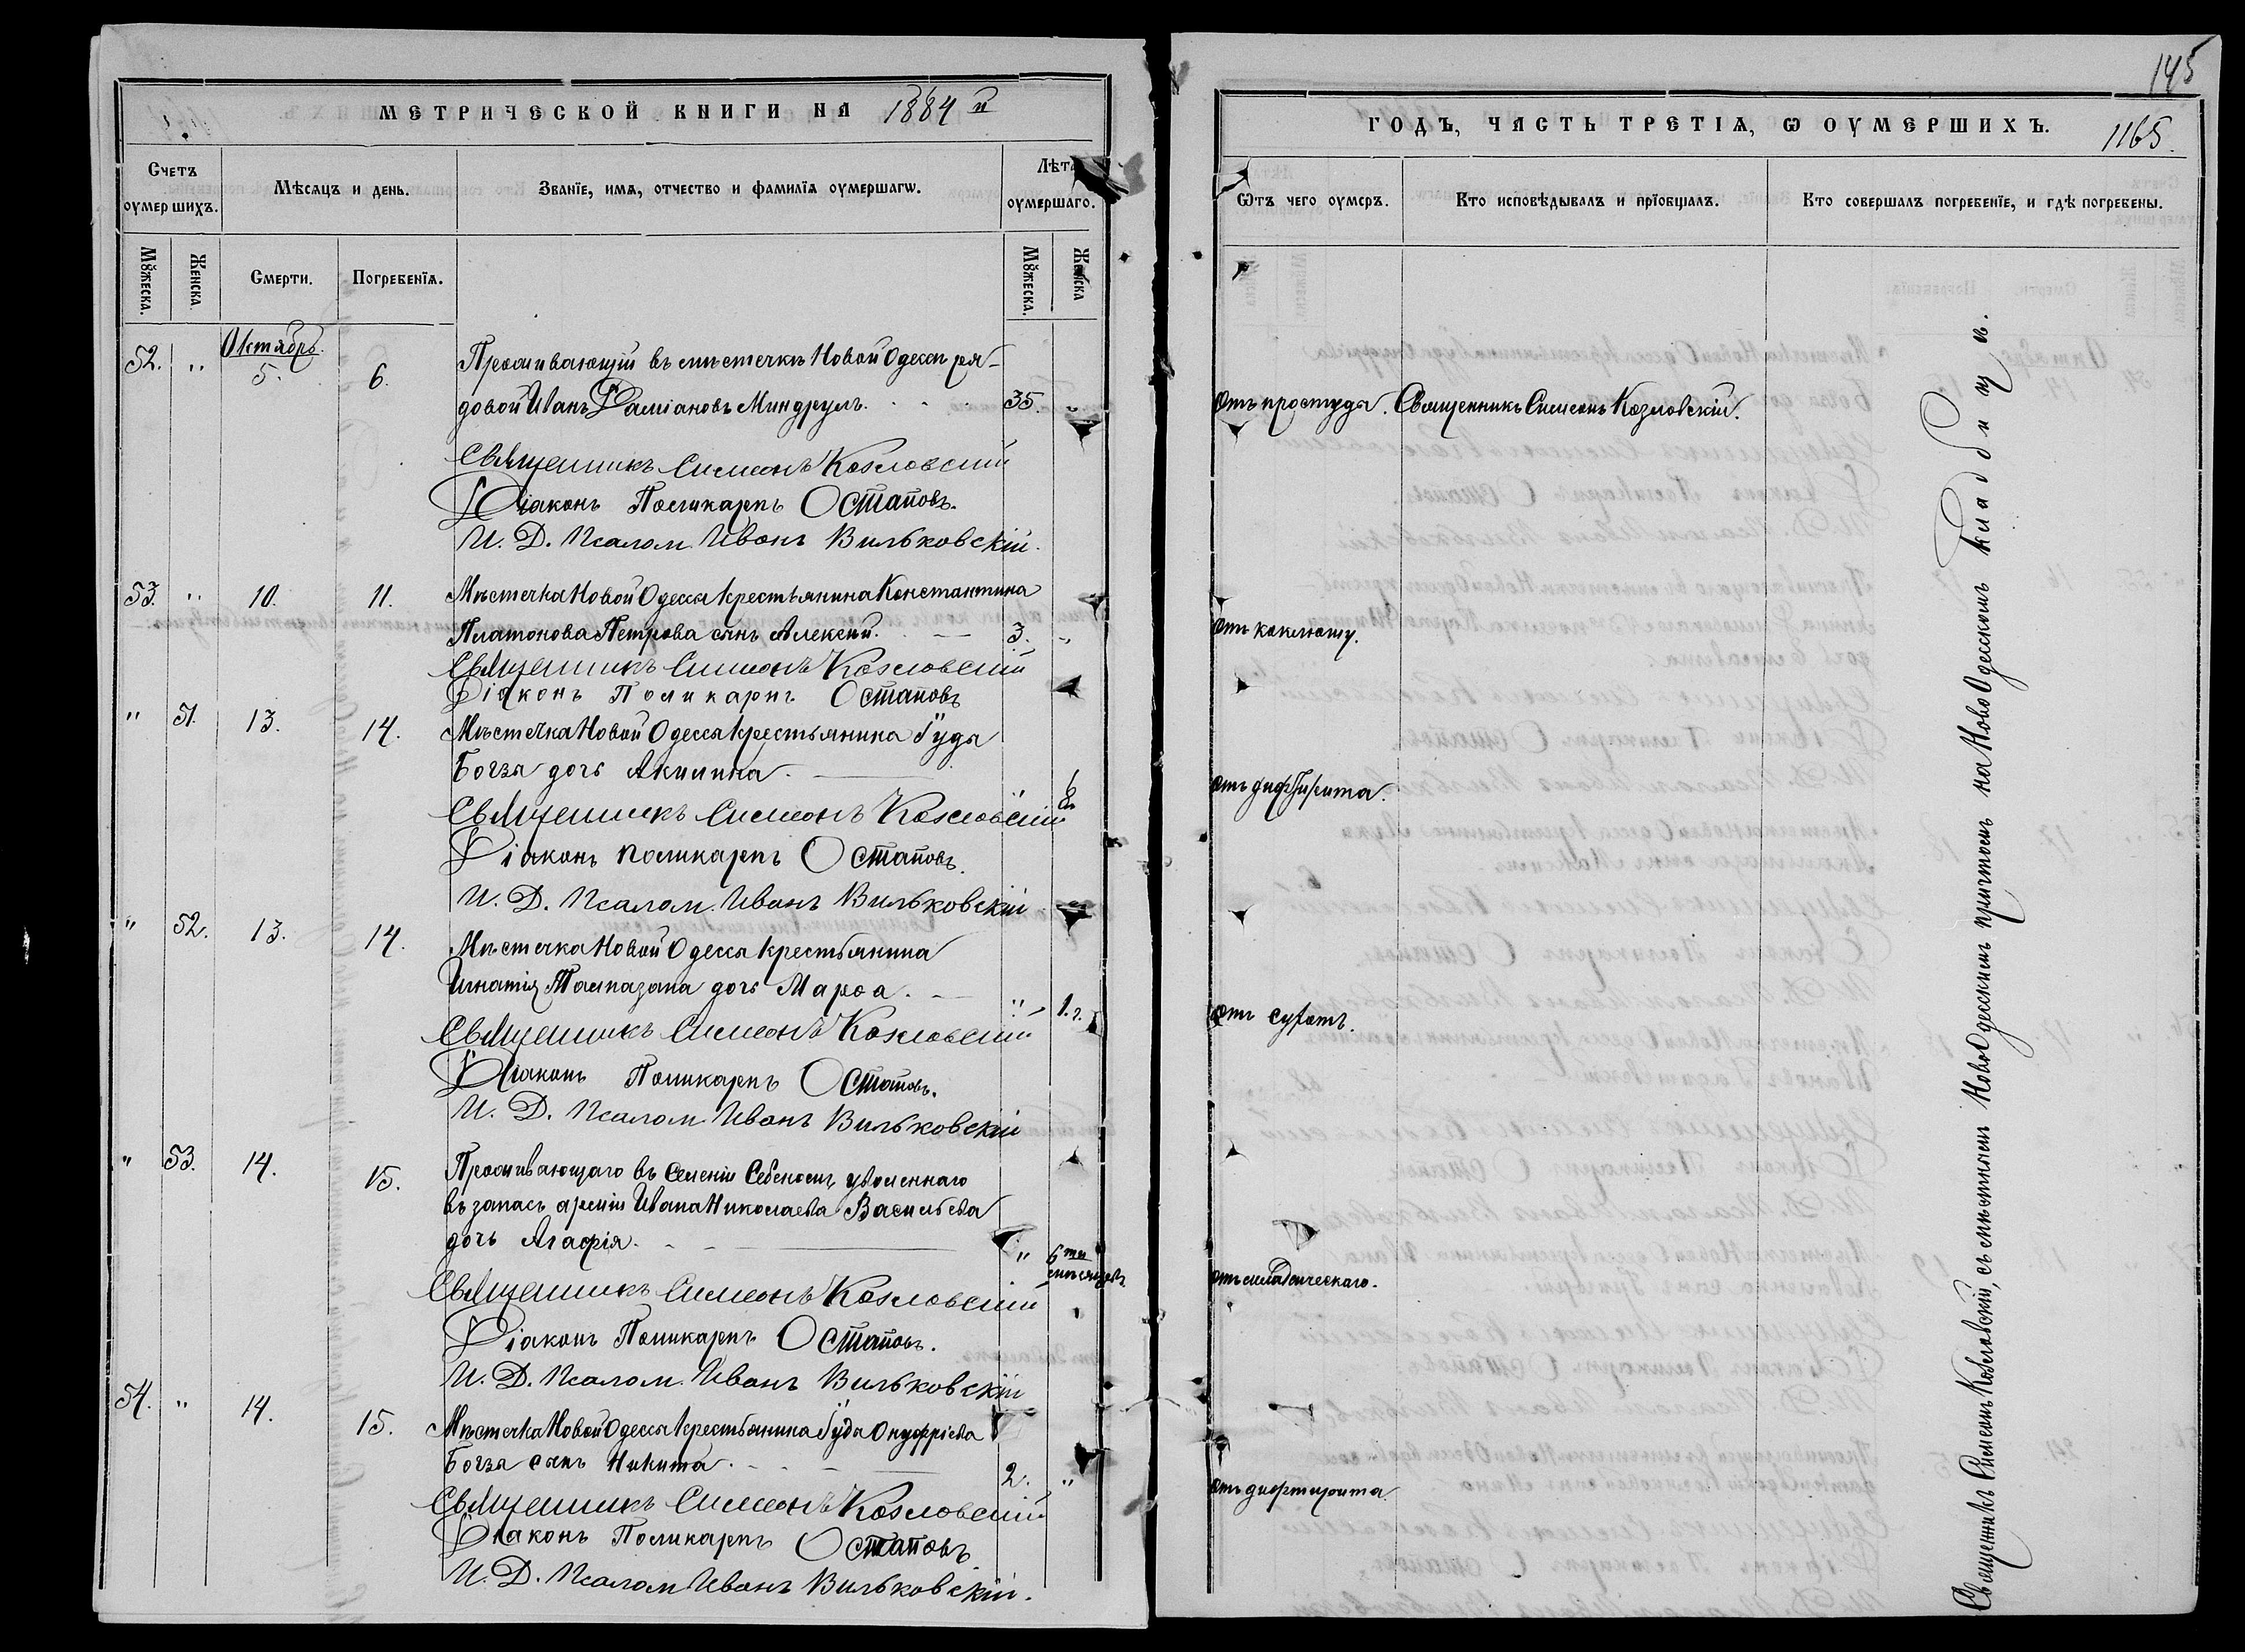 МЕТРИЧЕСКОЙ КНИГИ НА 1884 й
Счетъ оумершихъ.
Мѣсяцъ и день.
Званїе, имѧ, отчество и фамилїѧ оумершагѡ.
Лѣта оумершаго.
Мꙋжеска.
Женска.
Смерти.
Погребенїѧ.
Мꙋжеска.
Женска
Октябрь.
52. " 5. 6. Проживающій въ мѣстечкѣ Новой Одессѣ ря-
довой Иванъ Даміановъ Миндруль. 35. "
Священникъ Симеонъ Козловскій
Діаконъ Поликарпъ Остаповъ.
И. Д. Псалом. Иванъ Вильковскій.
53. " 10. 11. Мѣстечка Новой Одессы крестьянина Константина
Платонова Петрова сынъ Алексій. 3. "
Священникъ Симеонъ Козловскій
Діаконъ Поликарпъ Остаповъ
" 51. 13. 14. Мѣстечка Новой Одессы крестьянина Іуды
Богза дочь Акилина.
Священникъ Симеонъ Козловскій
Діаконъ Поликарпъ Остаповъ.
И. Д. Псалом. Иванъ Вильковскій
" 52. 13. 14. Мѣстечка Новой Одессы крестьянина
Игнатія дочь Марѳа. " 1. г.
Священникъ Симеонъ Козловскій
Діаконъ Поликарпъ Остаповъ.
И. Д. Псалом. Иванъ Вильковскій
" 53. 14. 15. Проживающаго въ Селеніи уволеннаго
въ запасъ арміи Ивана Николаева Васильева
дочь Агафія. " 6ти мѣсяцевъ
Священникъ Симеонъ Козловскій
Діаконъ Поликарпъ Остаповъ.
И. Д. Псалом. Иванъ Вильковскій
54. " 14. 15. Мѣстечка Новой Одессы крестьянина Іуды Онуфріева
Богза сынъ Никита. 2. "
Священникъ Симеонъ Козловскій
Діаконъ Поликарпъ Остаповъ
И. Д. Псалом Иванъ Вильковскій.
145
ГОДЪ, ЧАСТЬ ТРЕТІА, Ѡ ОУМЕРШИХЪ. 1165.
Ѿтъ чего оумеръ.
Кто исповѣдывалъ и прїобщалъ.
Кто совершалъ погребенїе, и гдѣ погребены.
Отъ простуды. Священникъ Симеонъ Козловскій.
Отъ коклюшу.
отъ дифтирита.
отъ сухотъ.
отъ младенческаго.
отъ дифтирита.
Священникъ Симеонъ Козловскій, съ мѣстнымъ НовоОдесскимъ причтомъ на НовоОдесскомъ кладбищѣ.